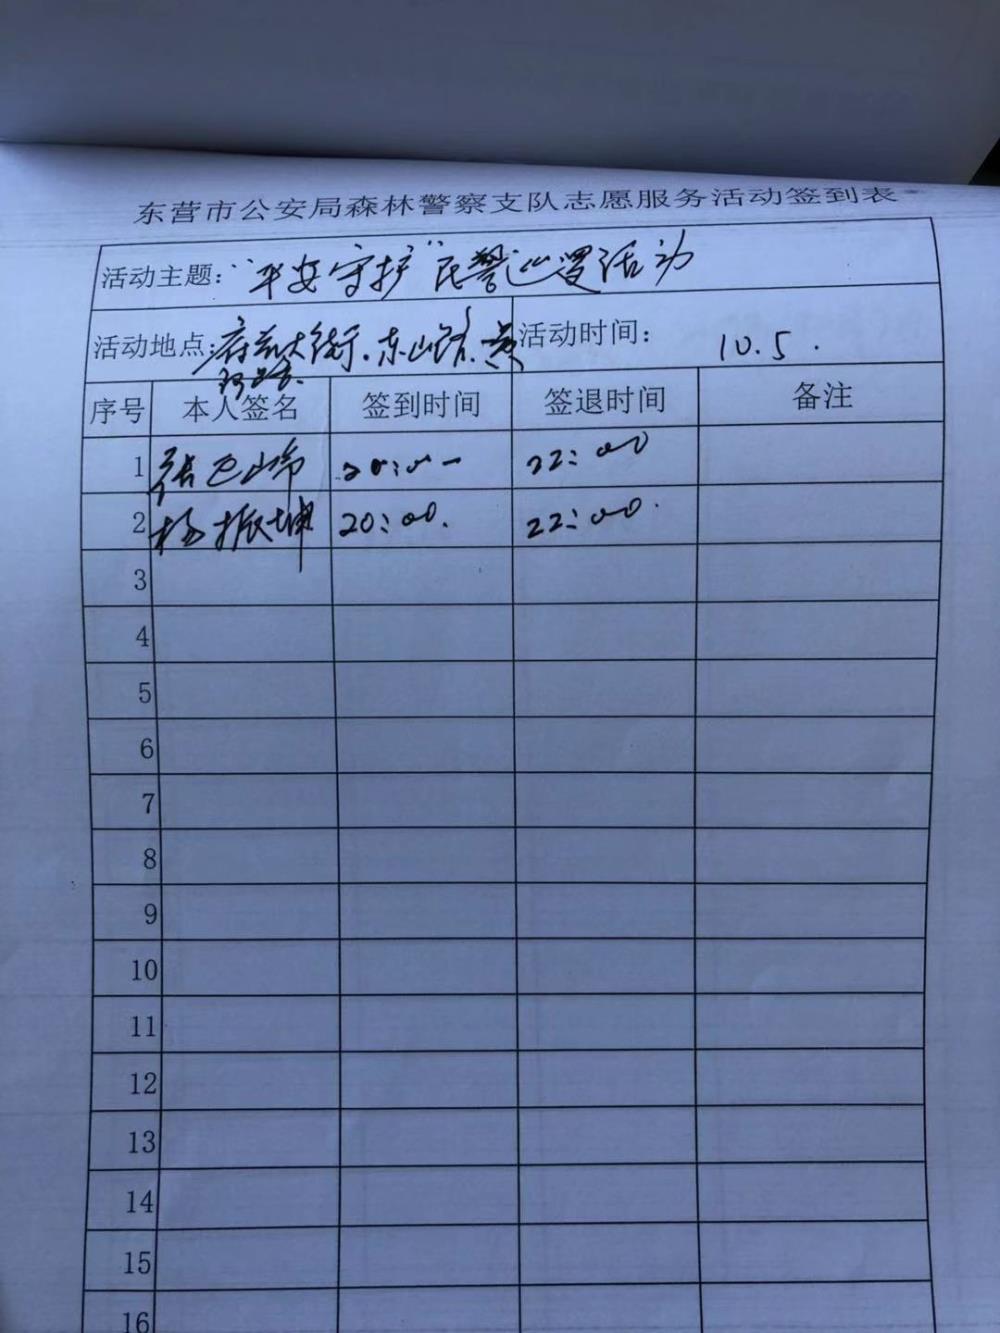 东营市公安局森林警察支队志愿服务活动签到表
活动主题：“平安守护”民警巡逻活动
活动地点：府前大街、东山路、黄河路 活动时间：10.5.
序号 本人签名 签到时间 签退时间 备注
1 张 20:00 22:00
2 杨振坤 20:00. 22:00.
3
4
5
6
7
8
9
10
11
12
13
14
15
16